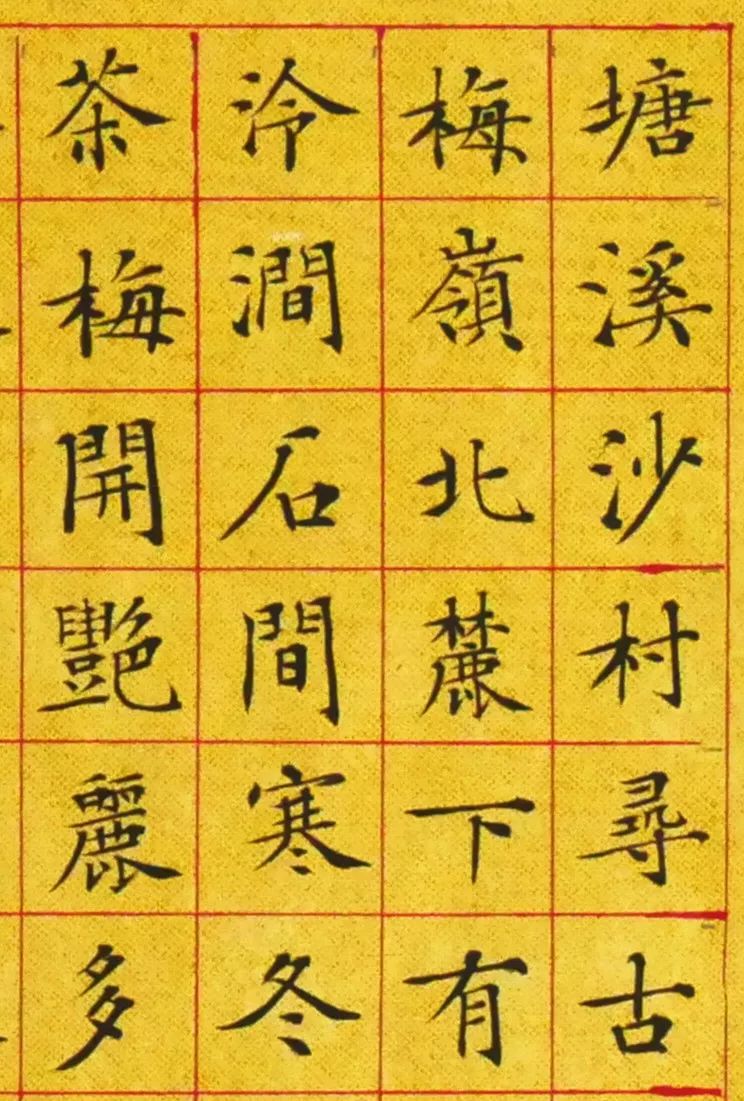 塘溪沙村尋古
梅嶺北麓下有
泠澗石間寒冬
茶梅開艷麗多